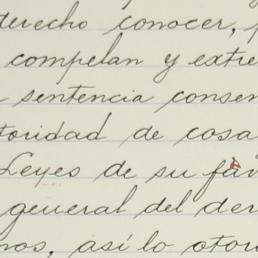 derecho conocer,
compelan y extre
sentencia consen
toridad de cosa
Leyes de su fav
general del der
nos, así lo otor